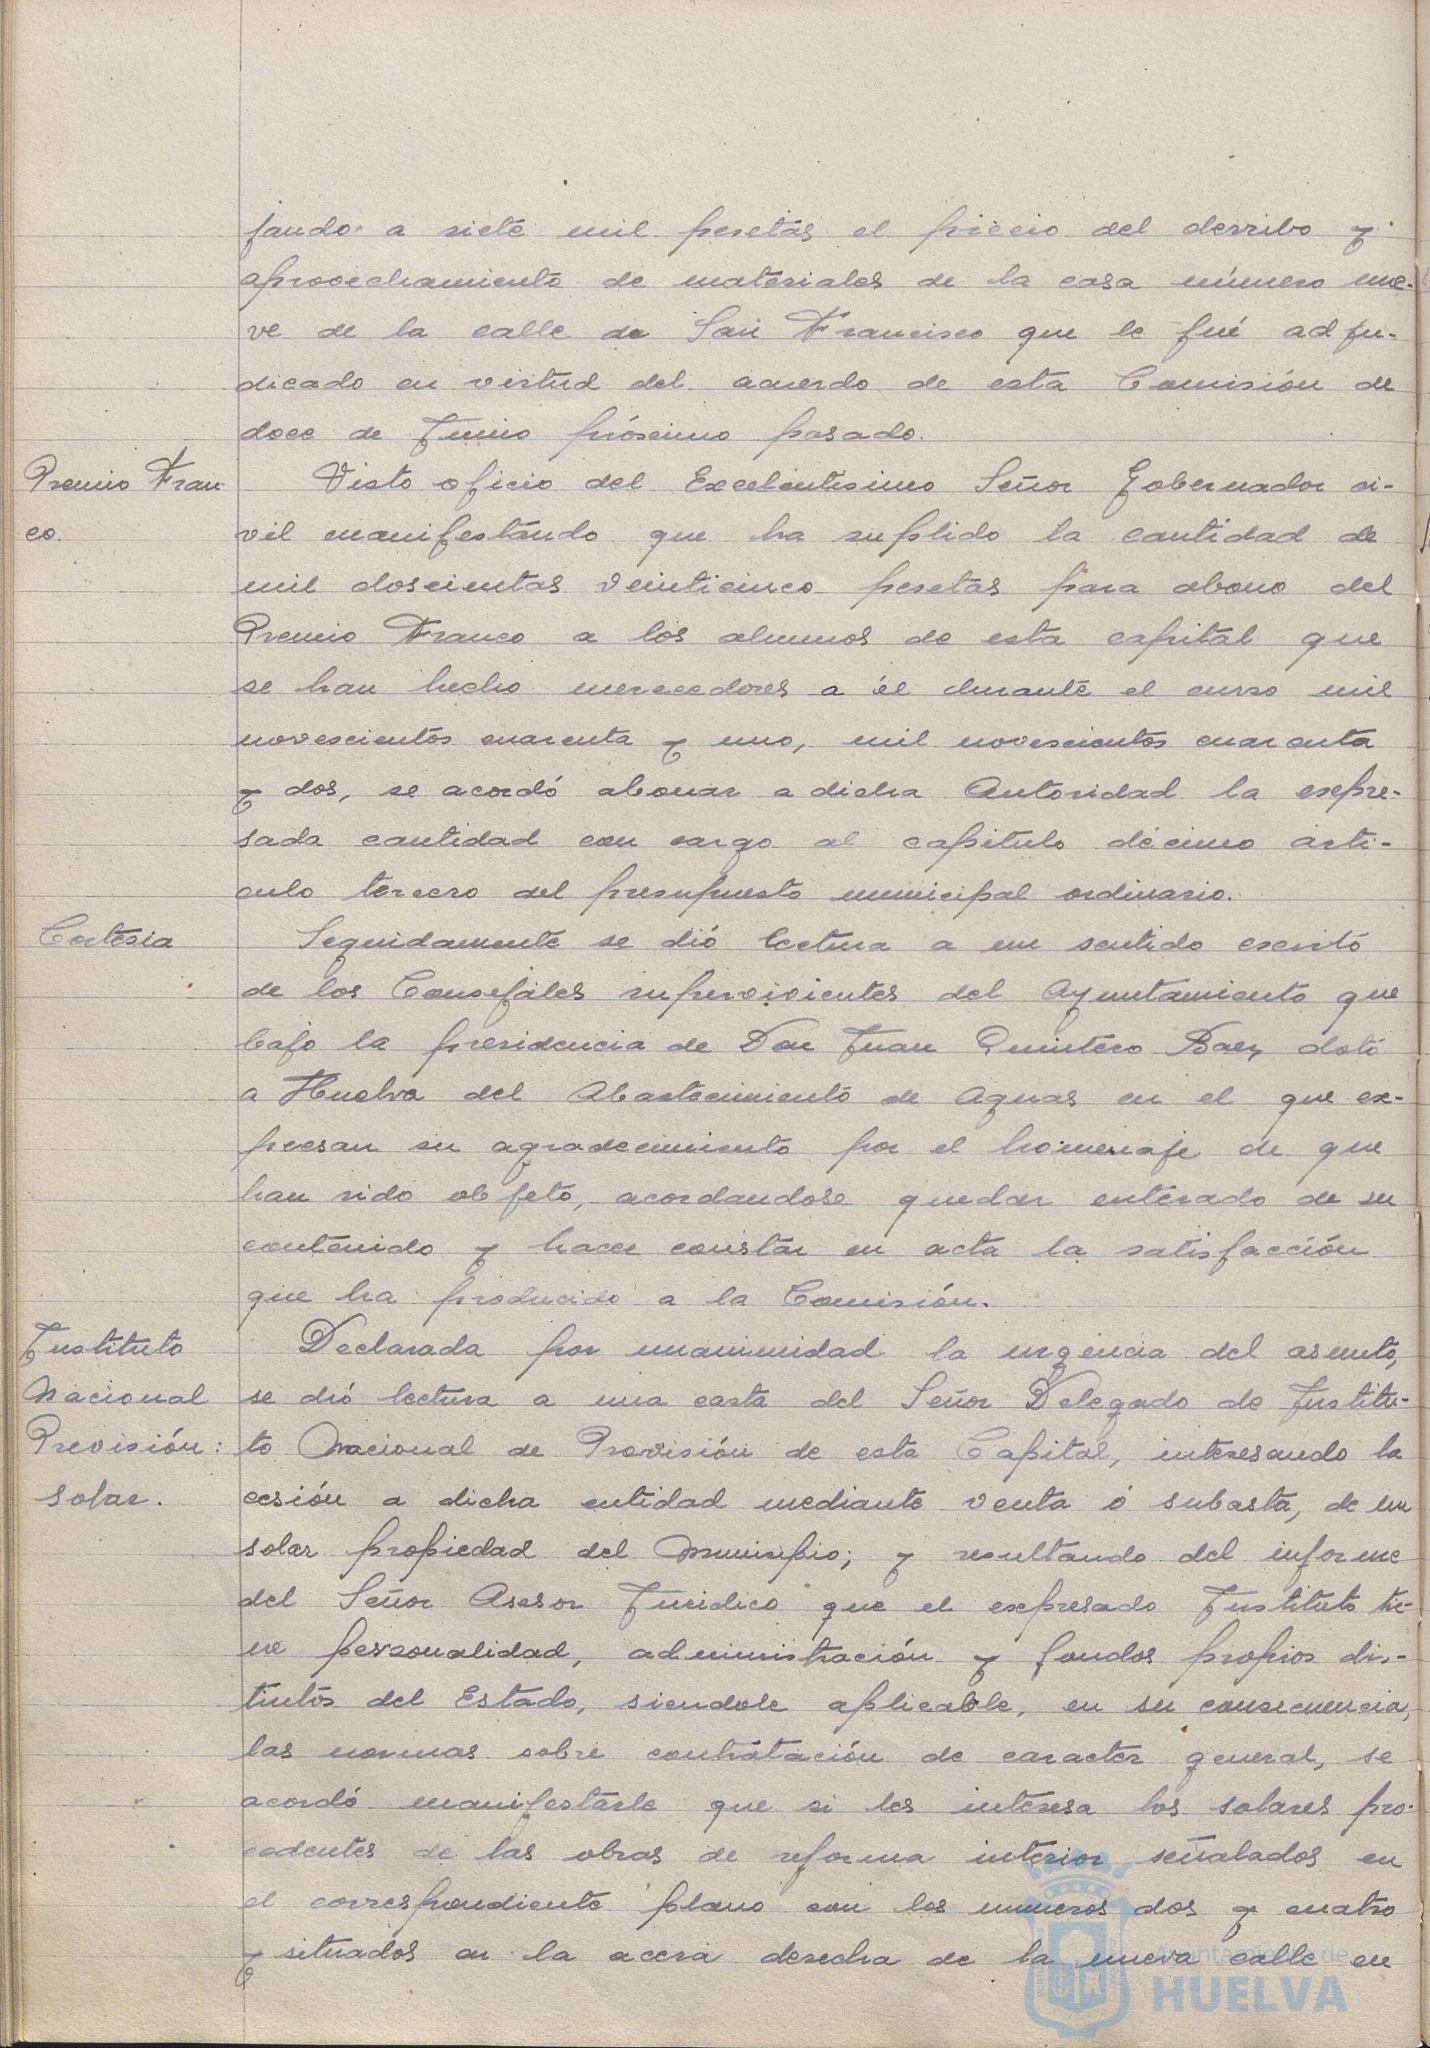 jando a siete mil pesetas el precio del derribo y
aprovechamiento de materiales de la casa número nue-
ve de la calle de San Francisco que le fué adju-
dicado en virtud del acuerdo de esta Comisión de
doce de Junio próximo pasado.
Premio Fran
co.
Visto oficio del Excelentisimo Señor Gobernador ci-
vil manifestando que ha suplido la cantidad de
mil doscientas veinticinco pesetas para abono del
Premio Franco a los alumnos de esta capital que
se han hecho merecedores a él durante el curso mil
novescientos cuarenta y uno, mil novescientos cuarenta
y dos, se acordó abonar a dicha Autoridad la expre-
sada cantidad con cargo al capitulo décimo arti-
culo tercero del presupuesto municipal ordinario.
Cortesia
Seguidamente se dió lectura a un sentido escrito
de los Concejales supervivientes del Ayuntamiento que
bajo la presidencia de Don Juan Quintero Baez dotó
a Huelva del Abastecimiento de Aguas en el que ex-
presan su agradecimiento por el homenaje de que
han sido objeto, acordandose quedar enterado de su
contenido y hacer constar en acta la satisfacción
que ha producido a la Comisión.
Instituto
Nacional
Previsión:
solar.
Declarada por unanimidad la urgencia del asunto,
se dió lectura a una carta del Señor Delegado de Institu-
to Nacional de Previsión de esta Capital, interesando la
cesión a dicha entidad mediante venta ó subasta, de un
solar propiedad del Municipio; y resultando del informe
del Señor Asesor Juridico que el expresado Instituto tie-
ne personalidad, administración y fondos propios dis-
tintos del Estado, siendole aplicable, en su consecuencia,
las normas sobre contratación de caracter general, se
acordó manifestarle que si les interesa los solares pro-
cedentes de las obras de reforma interior señalados en
el correspondiente plano con los numeros dos y cuatro
y situados en la acera derecha de la nueva calle en
Ayuntamiento de
HUELVA